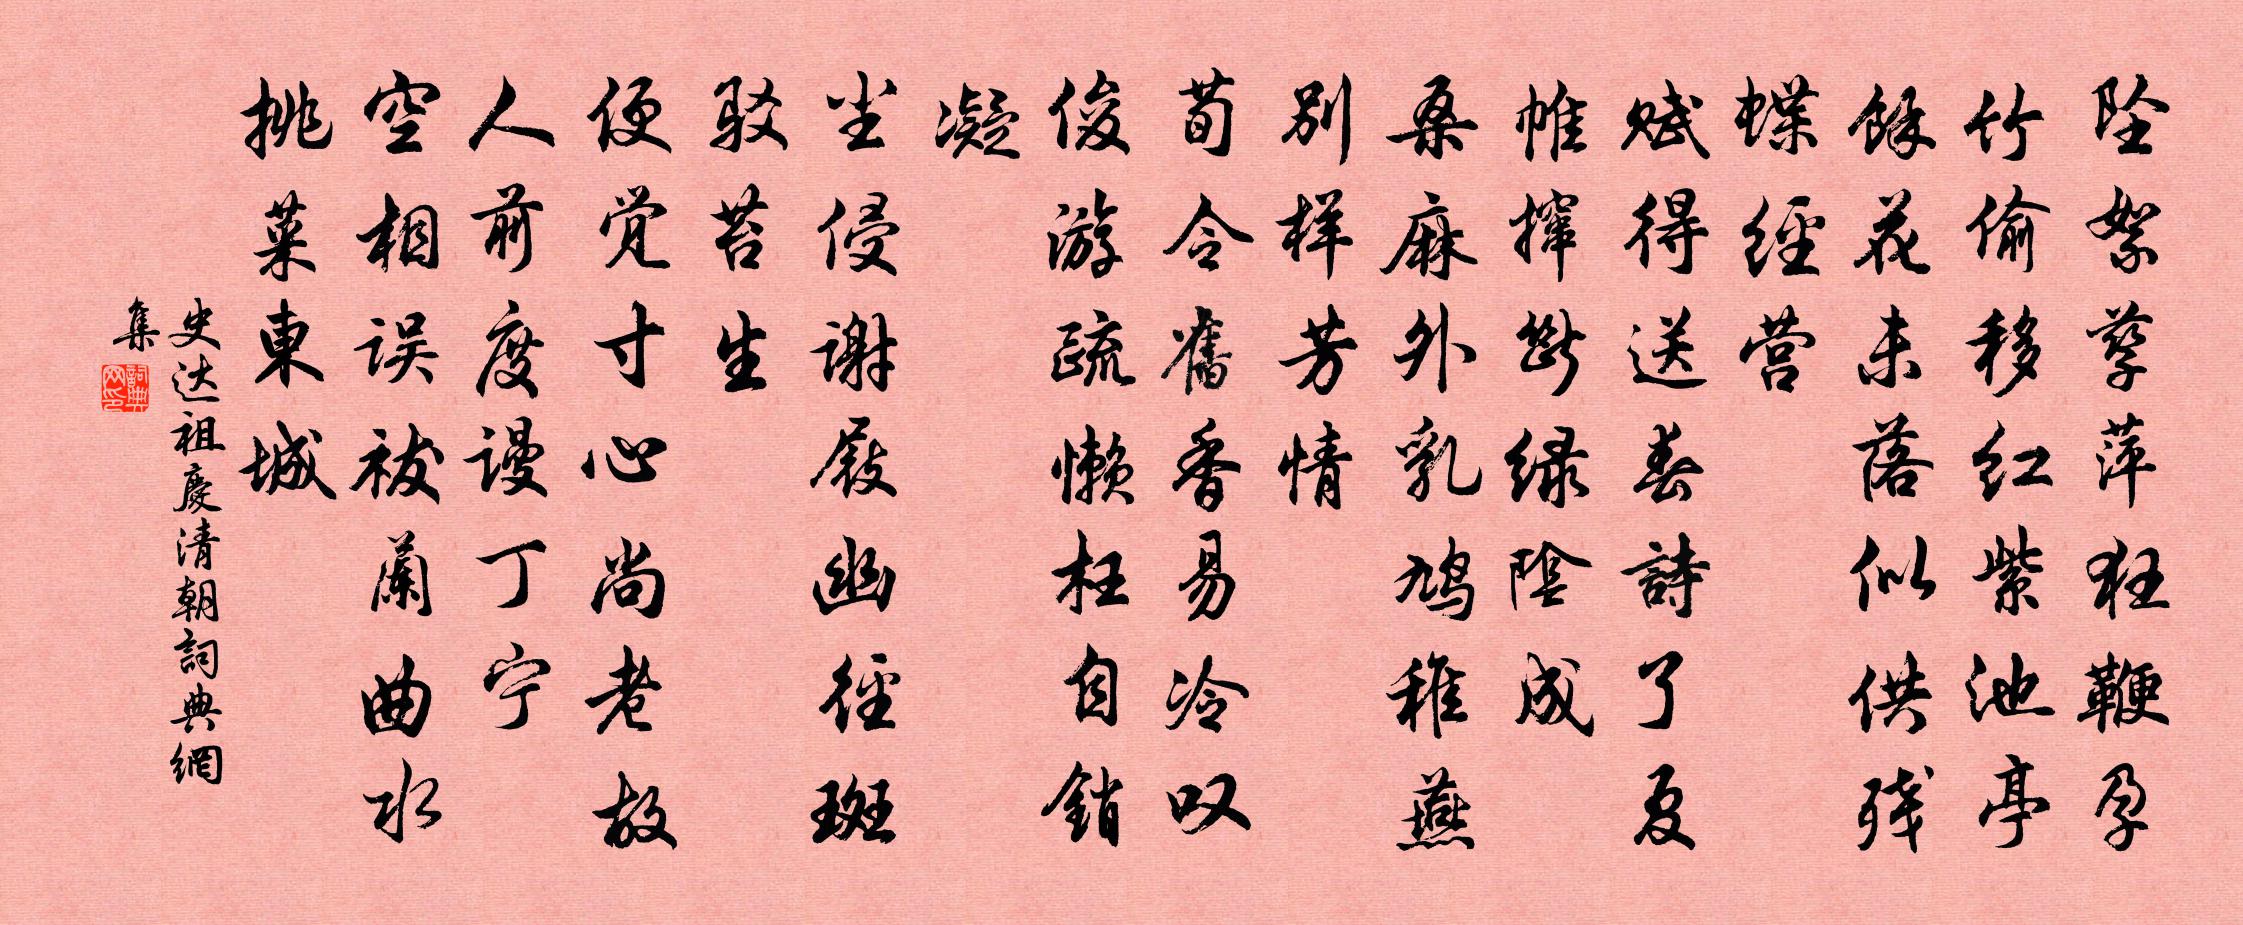 坠絮孳萍狂鞭孕
竹偷移红紫池亭
馀花未落似供残
蝶经营
赋得送春诗了夏
帷撺断绿阴成
桑麻外乳鸠稚燕
别样芳情
荀令旧香易冷叹
俊游疏懒枉自销
凝
尘侵谢屐幽径斑
驳苔生
便觉寸心尚老故
人前度谩丁宁
空相误祓兰曲水
挑菜东城
史达祖庆清朝词典网
集
词典网印